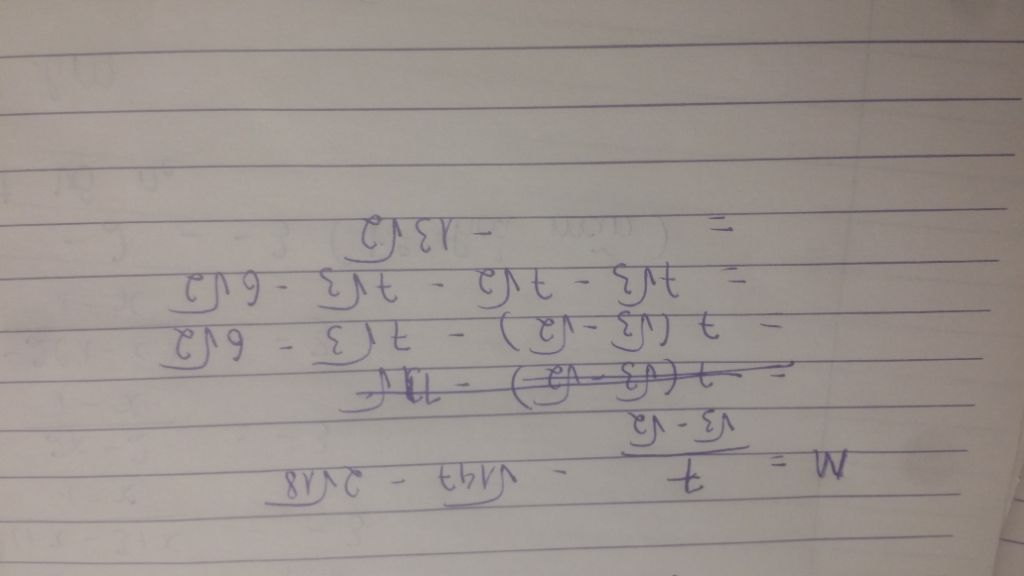 M = 7/(√3 - √2) - √147 - 2√18
= 7(√3 - √2) -
= 7(√3 - √2) - 7√3 - 6√2
= 7√3 - 7√2 - 7√3 - 6√2
= - 13√2